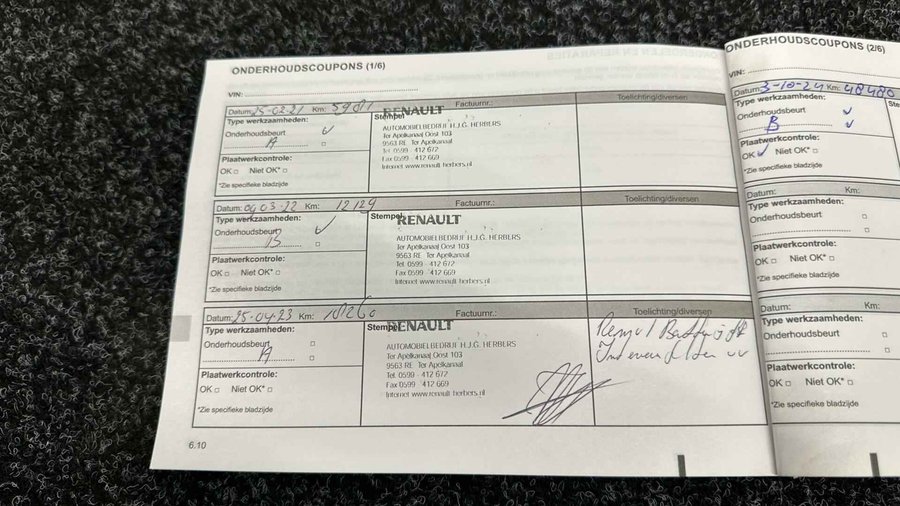 ONDERHOUDSCOUPONS (1/6)
VIN:
Datum: 15-02-21 Km: 5981 Factuurnr.: Toelichting/diversen
Type werkzaamheden: Stempel RENAULT
Onderhoudsbeurt ✓ AUTOMOBIELBEDRIJF H.J.G. HERBERS
A Ter Apelkanaal Oost 103
9563 RE Ter Apelkanaal
Plaatwerkcontrole: Tel. 0599 - 412 672
OK Niet OK* Fax 0599 - 412 669
Internet www.renault-herbers.nl
*Zie specifieke bladzijde
Datum: 04 03-22 Km: 12129 Factuurnr.: Toelichting/diversen
Type werkzaamheden: Stempel RENAULT
Onderhoudsbeurt ✓ AUTOMOBIELBEDRIJF H.J.G. HERBERS
B Ter Apelkanaal Oost 103
9563 RE Ter Apelkanaal
Plaatwerkcontrole: Tel. 0599 - 412 672
OK Niet OK* Fax 0599 - 412 669
*Zie specifieke bladzijde Internet www.renault-herbers.nl
Datum: 25-04-23 Km: Factuurnr.: Toelichting/diversen
Type werkzaamheden: Stempel RENAULT
Onderhoudsbeurt AUTOMOBIELBEDRIJF H.J.G. HERBERS
A Ter Apelkanaal Oost 103
9563 RE Ter Apelkanaal
Plaatwerkcontrole: Tel. 0599 - 412 672
OK Niet OK* Fax 0599 - 412 669
Internet www.renault-herbers.nl
*Zie specifieke bladzijde
6.10
ONDERHOUDSCOUPONS (2/6)
VIN:
Datum: 3-10-24 Km: 48480
Type werkzaamheden:
Onderhoudsbeurt ✓
B ✓
Plaatwerkcontrole:
OK ✓ Niet OK*
*Zie specifieke bladzijde
Datum: Km:
Type werkzaamheden:
Onderhoudsbeurt
Plaatwerkcontrole:
OK Niet OK*
*Zie specifieke bladzijde
Datum: Km:
Type werkzaamheden:
Onderhoudsbeurt
Plaatwerkcontrole:
OK Niet OK*
*Zie specifieke bladzijde